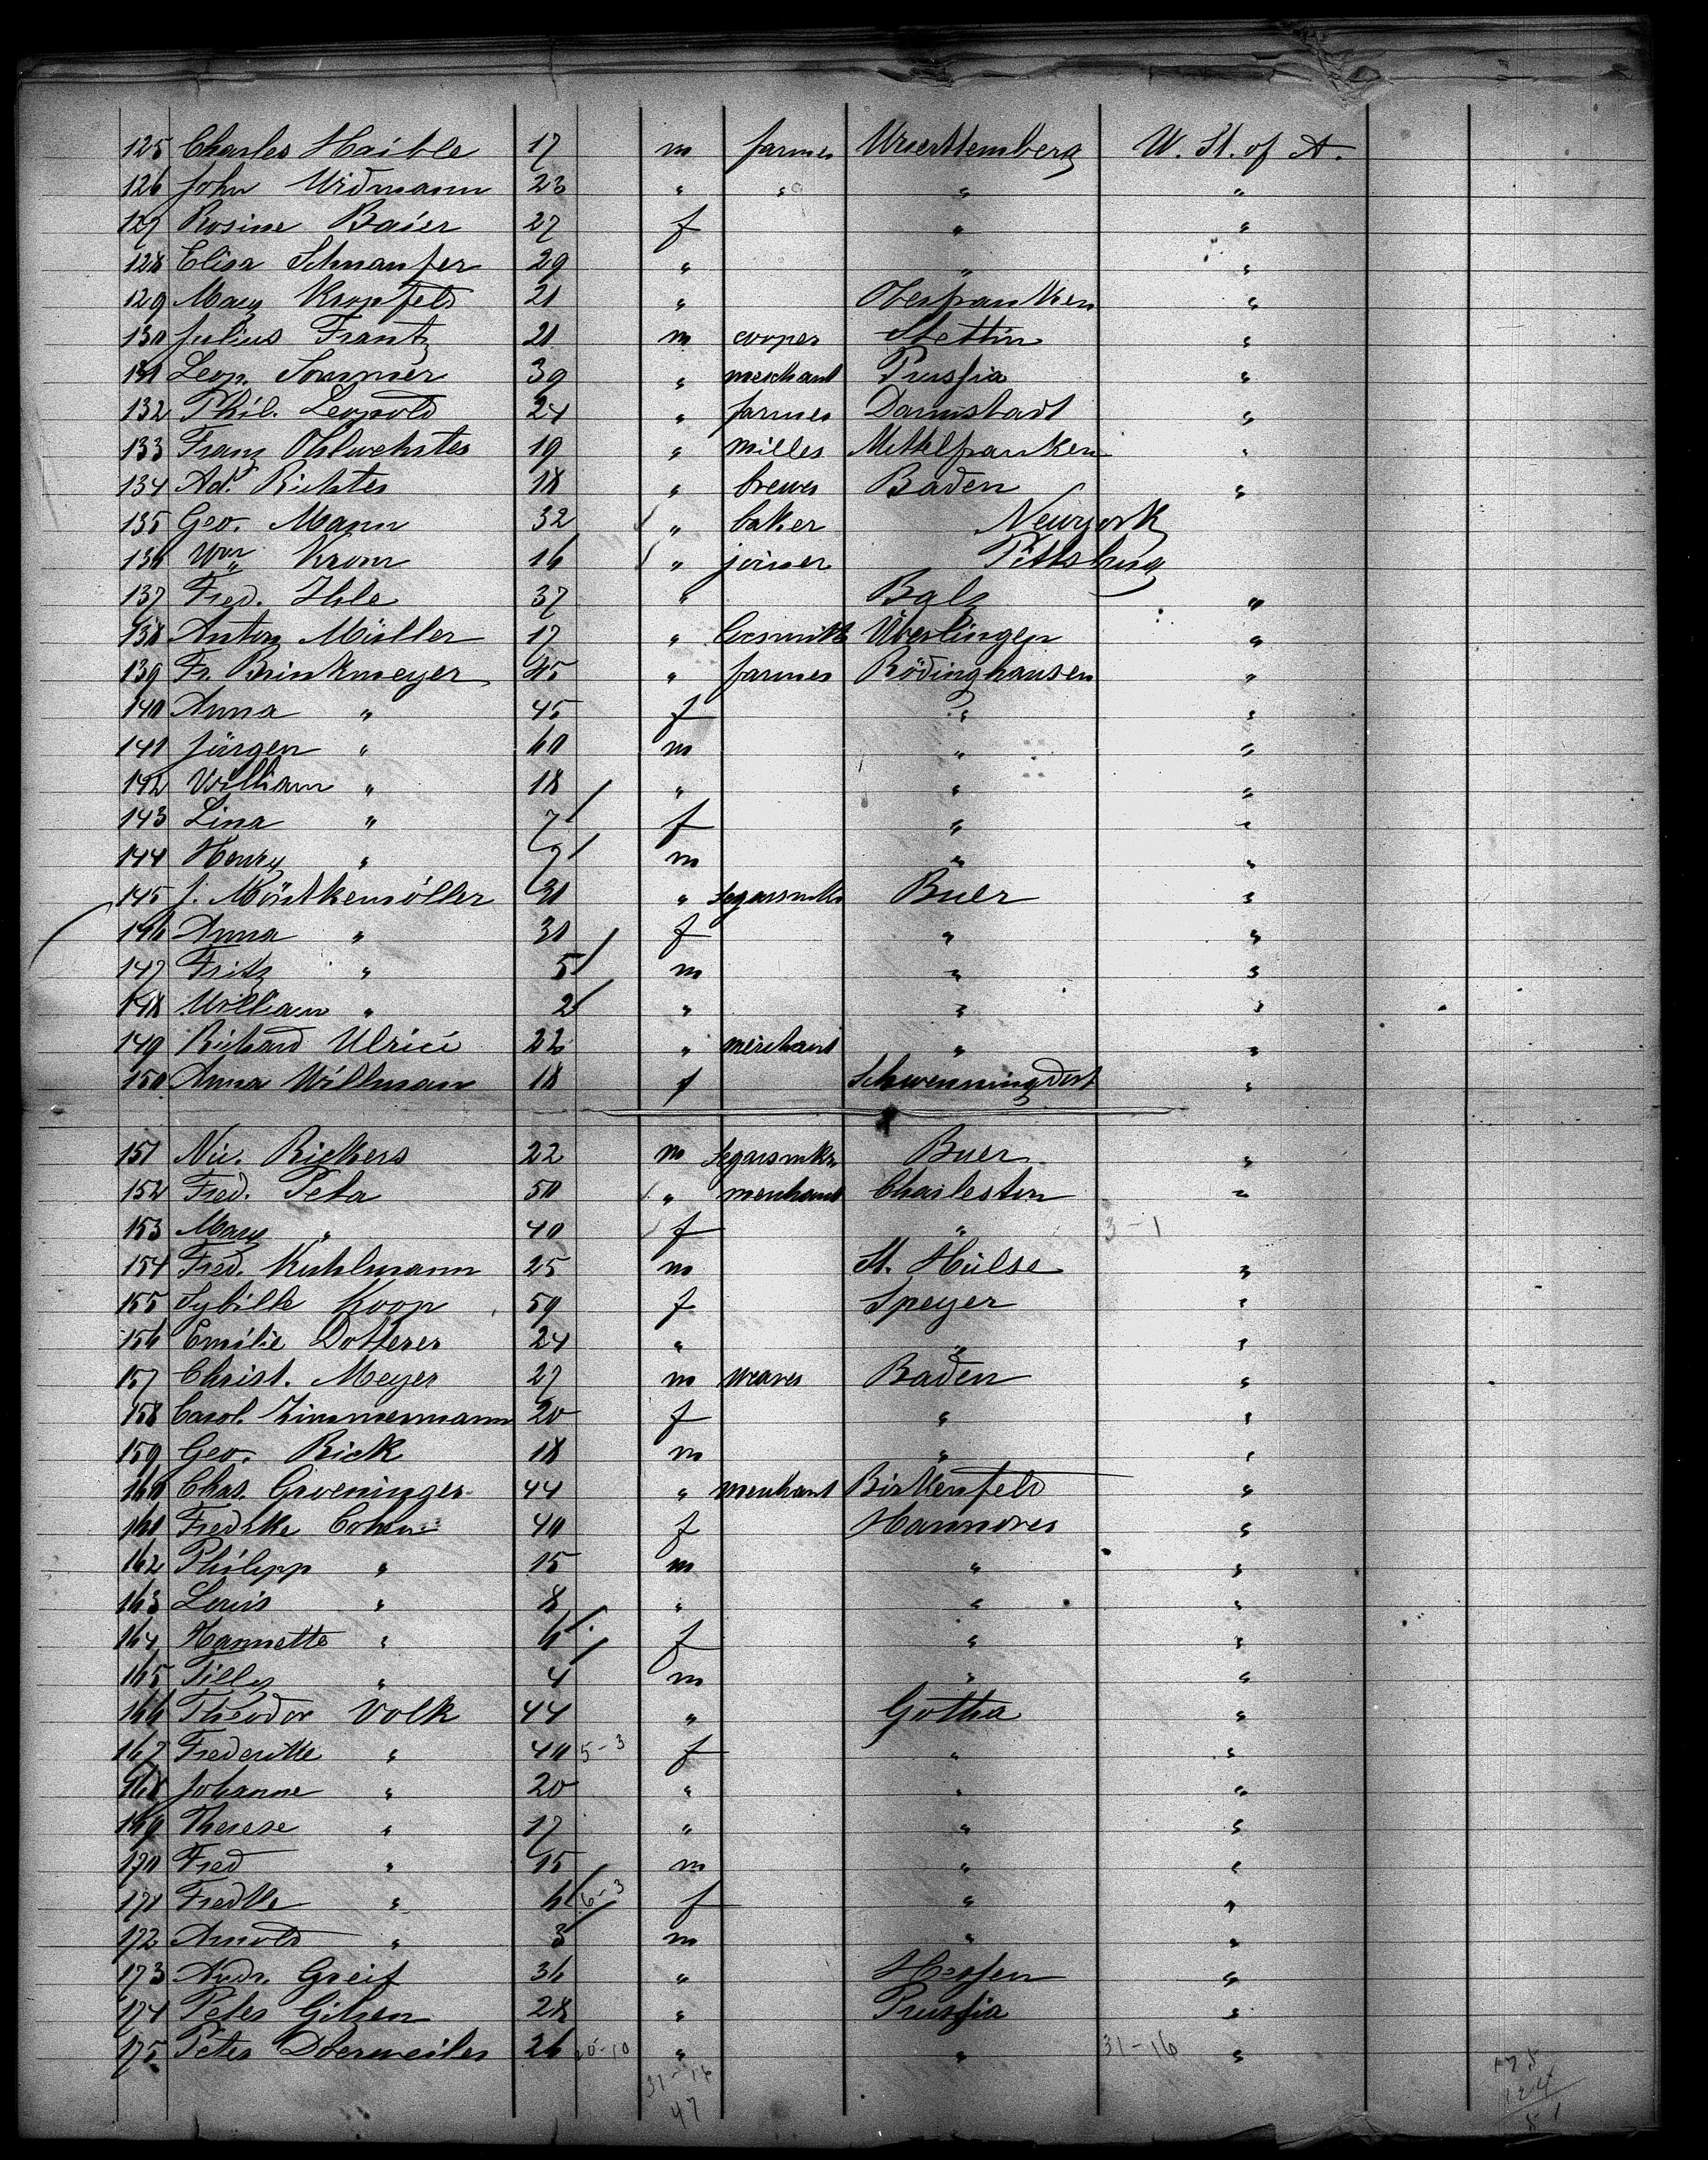 125 Charles Haible 17 m farmer Wuerttemberg U. St. of A.
126 John Widmann 23 " " " "
127 Rosine Baier 27 f " "
128 Elisa Schnaufer 29 " " "
129 Mary Kropfeld 21 " Oberfranken "
130 Julius Frantz 21 m cooper Stettin "
131 Leop. Sommer 39 " merchant Prussia "
132 Phil. Leopold 24 " farmer Darmstadt "
133 Franz 19 " miller Mittelfranken "
134 Ad. Richter 18 " brewer Baden "
135 Geo. Mann 32 " baker Newyork
136 Wm Krom 16 " joiner Pittsburg
137 Fred. Ihle 37 " "
138 Anton Müller 17 " Locsmith Überlingen "
139 Fr. Brinkmeyer 45 " farmer Rödinghausen "
140 Anna " 45 f " "
141 Jürgen " 60 m " "
142 William " 18 " " "
143 Lina " 7 f " "
144 Henry " 9 m " "
145 J. Möntkemöller 31 " Segarsmkr Buer "
146 Anna " 31 f " "
147 Fritz " 5 m " "
148 William " 2 " " "
149 Richard Ulrici 22 " merchant " "
150 Anna Willman 18 f Schwenningdorf "
151 Nic. Rickers 22 m Segarsmkr Buer "
152 Fred. Peta 50 " merchant Charleston "
153 Mary " 40 f " 3-1
154 Fred. Kuhlmann 25 m St. Hülse "
155 Sybille Koop 59 f Speyer "
156 Emilie Dotterer 24 " " "
157 Christ. Meyer 27 m weaver Baden "
158 Carol. Zimmermann 20 f " "
159 Geo. Rick 18 m " "
160 Chas. Groeninger 44 " merchant Birkenfeld "
161 Fredrke Cohen 40 f Hannover "
162 Philipp " 15 m " "
163 Louis " 8 " " "
164 Hannette " 6 f " "
165 Tilly " 4 m " "
166 Theodor Volk 44 " Gotha "
167 Frederikke " 40 5-3 f " "
168 Johanne " 20 " " "
169 Therese " 17 " " "
170 Fred " 15 m " "
171 Fredke " 6 6-3 f " "
172 Arnold " 3 m " "
173 Andr. Greif 36 " Hessen "
174 Peter Gitzen 28 " Prussia "
175 Peter Doerweiler 26 " " 31-16 "
31-16
47
175
124
51